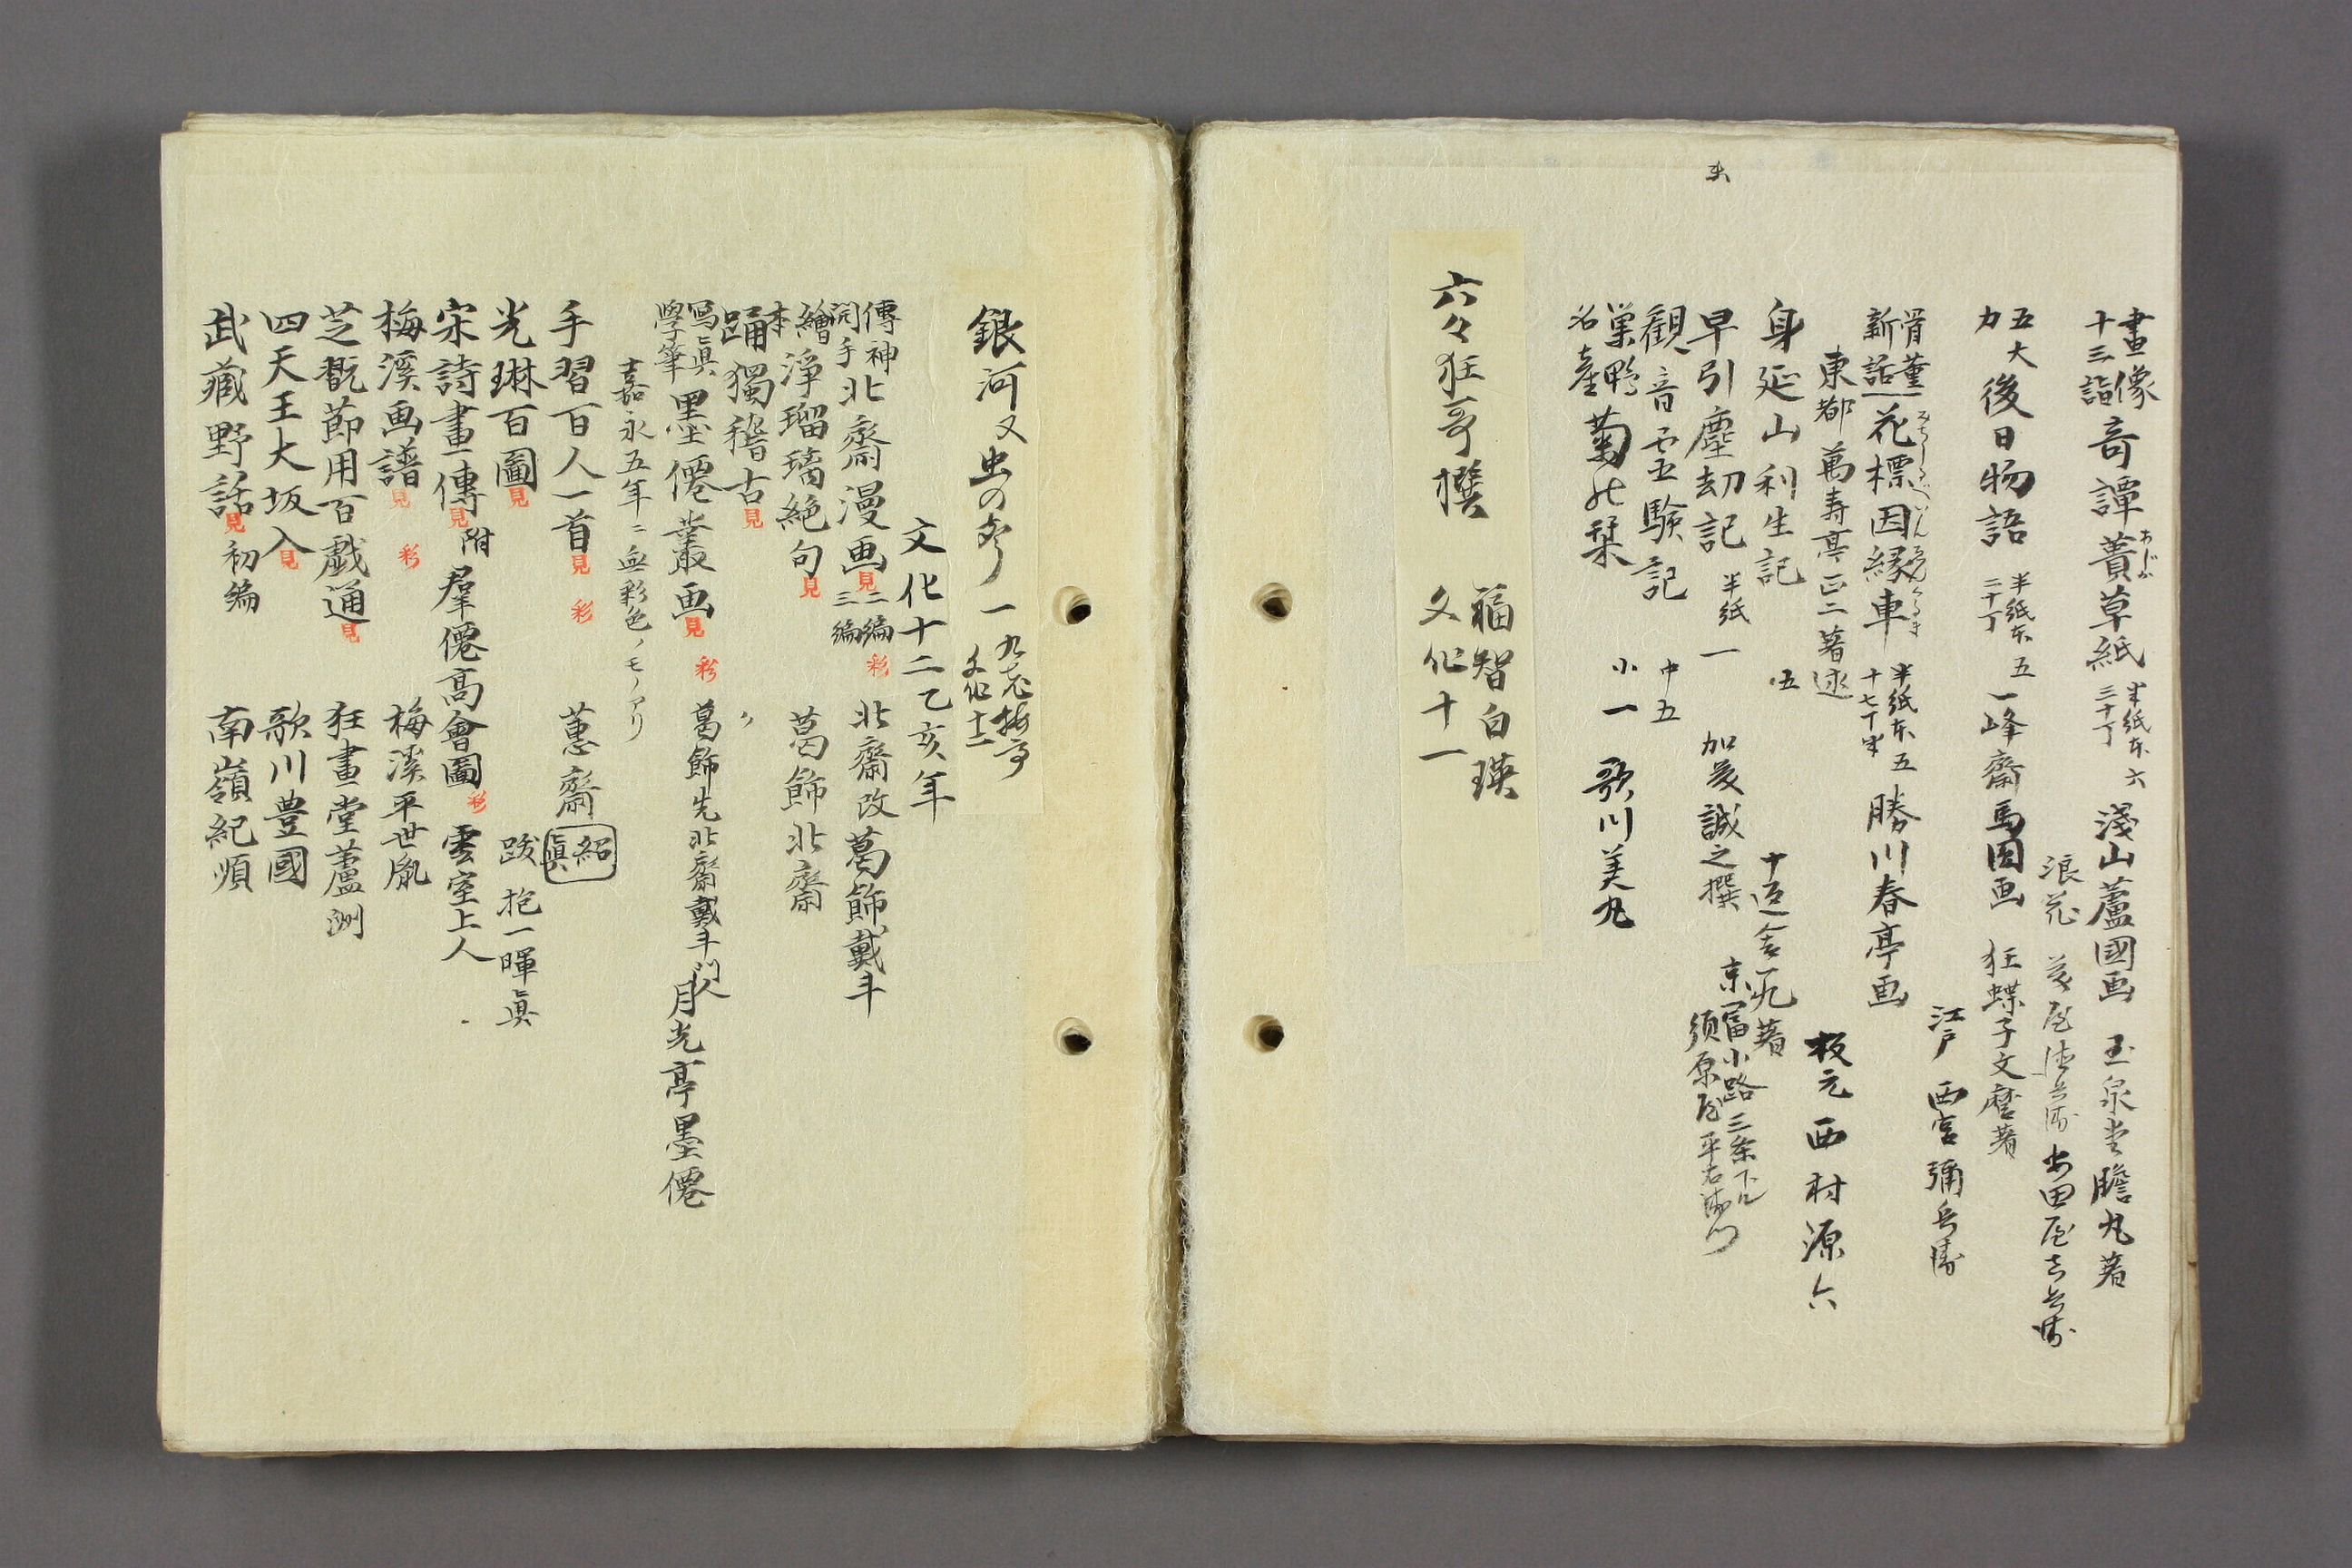 畫像十三詣 奇譚蕢草紙 半紙本 三十丁 六 淺山蘆國画 玉泉堂瞻丸著
浪花
五大力 後日物語 半紙本 二十丁 五 一峰齋馬圓画 狂蝶子文麿著
江戸 西宮彌兵衛
骨董新話 花標因縁車 半紙本 五 勝川春亭画
東都 萬寿亭正二著述
板元 西村源六
身延山利生記 五 十返舎一九著
早引塵劫記 半紙 一 加茂誠之撰 京冨小路三条下ル
須原屋平左衛門
観音霊験記 中五
巣鴨名産 菊の栞 小一 歌川美丸
六々狂哥撰 福智白瑛
文化十一
銀河又虫の聲 一
文化十二
文化十二乙亥年
傳神開手 北齋漫画 見 二編 三編 彩 北齋改葛飾戴斗
繪本 淨瑠璃絶句 見 葛飾北齋
踊獨稽古 見
寫眞學筆 墨僊叢画 見 彩 葛飾先北齋戴斗門人 月光亭墨僊
嘉永五年ニ無彩色ノモノアリ
手習百人一首 見 彩 蕙齋 紹眞
光琳百圖 見 跋 抱一暉眞
宋詩畫傳 見 附 羣僊高會圖 彩 雲室上人
梅溪画譜 見 彩 梅溪平世胤
芝翫節用百戯通 見 狂畫堂蘆洲
四天王大坂入 見 歌川豊國
武藏野話 見 初編 南嶺紀順